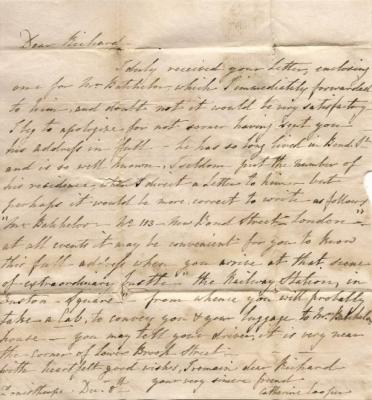 Dear Richard
I duly received your letter, enclosing
one for Mr Batchelor which I immediately forwarded
to him, and doubt not it would be very satisfactory
I beg to apologize for not sooner having sent you
his address in full - he has so long lived in Bond St
and is so well known, I seldom put the number of
his residence, when I direct a letter to him - but
perhaps it would be more correct to write as follows
"Mr Batchelor - No 113 - New Bond Street - London" -
at all events it may be convenient for you to know
this full address when you arrive at that scene
of extraordinary bustle "the Railway Station, in
Euston Square" - from whence you will probably
take a Cab, to convey you & your luggage to Mr Batchelor's
house - you may tell your driver, it is very near
the corner of Lower Brook Street -
with heartfelt good wishes, I remain dear Richard
Dec. 8th your very sincere friend
Catherine